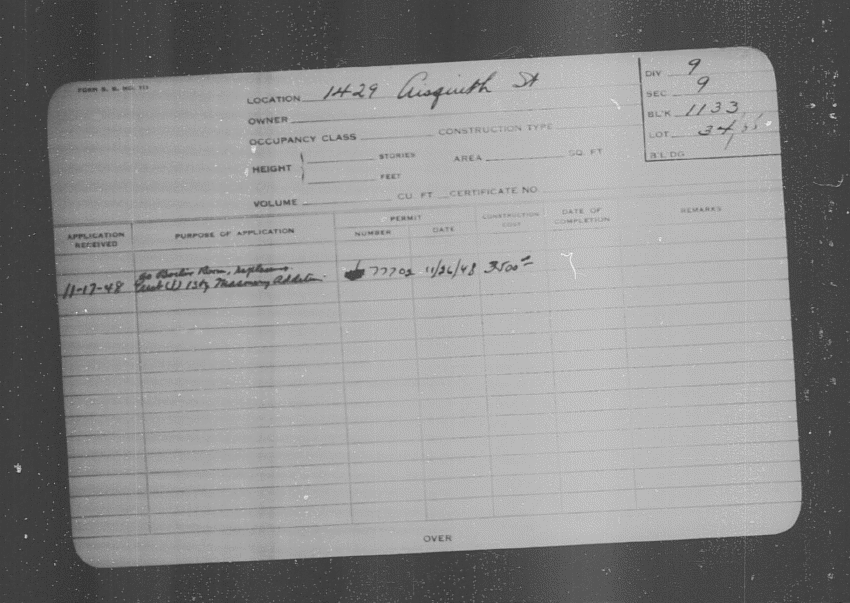 FORM B. E. NO.
LOCATION 1429 Aisquith St
OWNER
OCCUPANCY CLASS CONSTRUCTION TYPE
HEIGHT STORIES AREA SQ. FT
FEET
VOLUME CU. FT. CERTIFICATE NO
DIV 9
SEC 9
BL'K 1133
LOT 34
B'L'DG
APPLICATION RECEIVED
PURPOSE OF APPLICATION
PERMIT
NUMBER DATE
CONSTRUCTION COST
DATE OF COMPLETION
REMARKS
11-17-48 Boiler Room,
(1) 1 Sty Masonry Addition
77702 11/26/48 3500
OVER